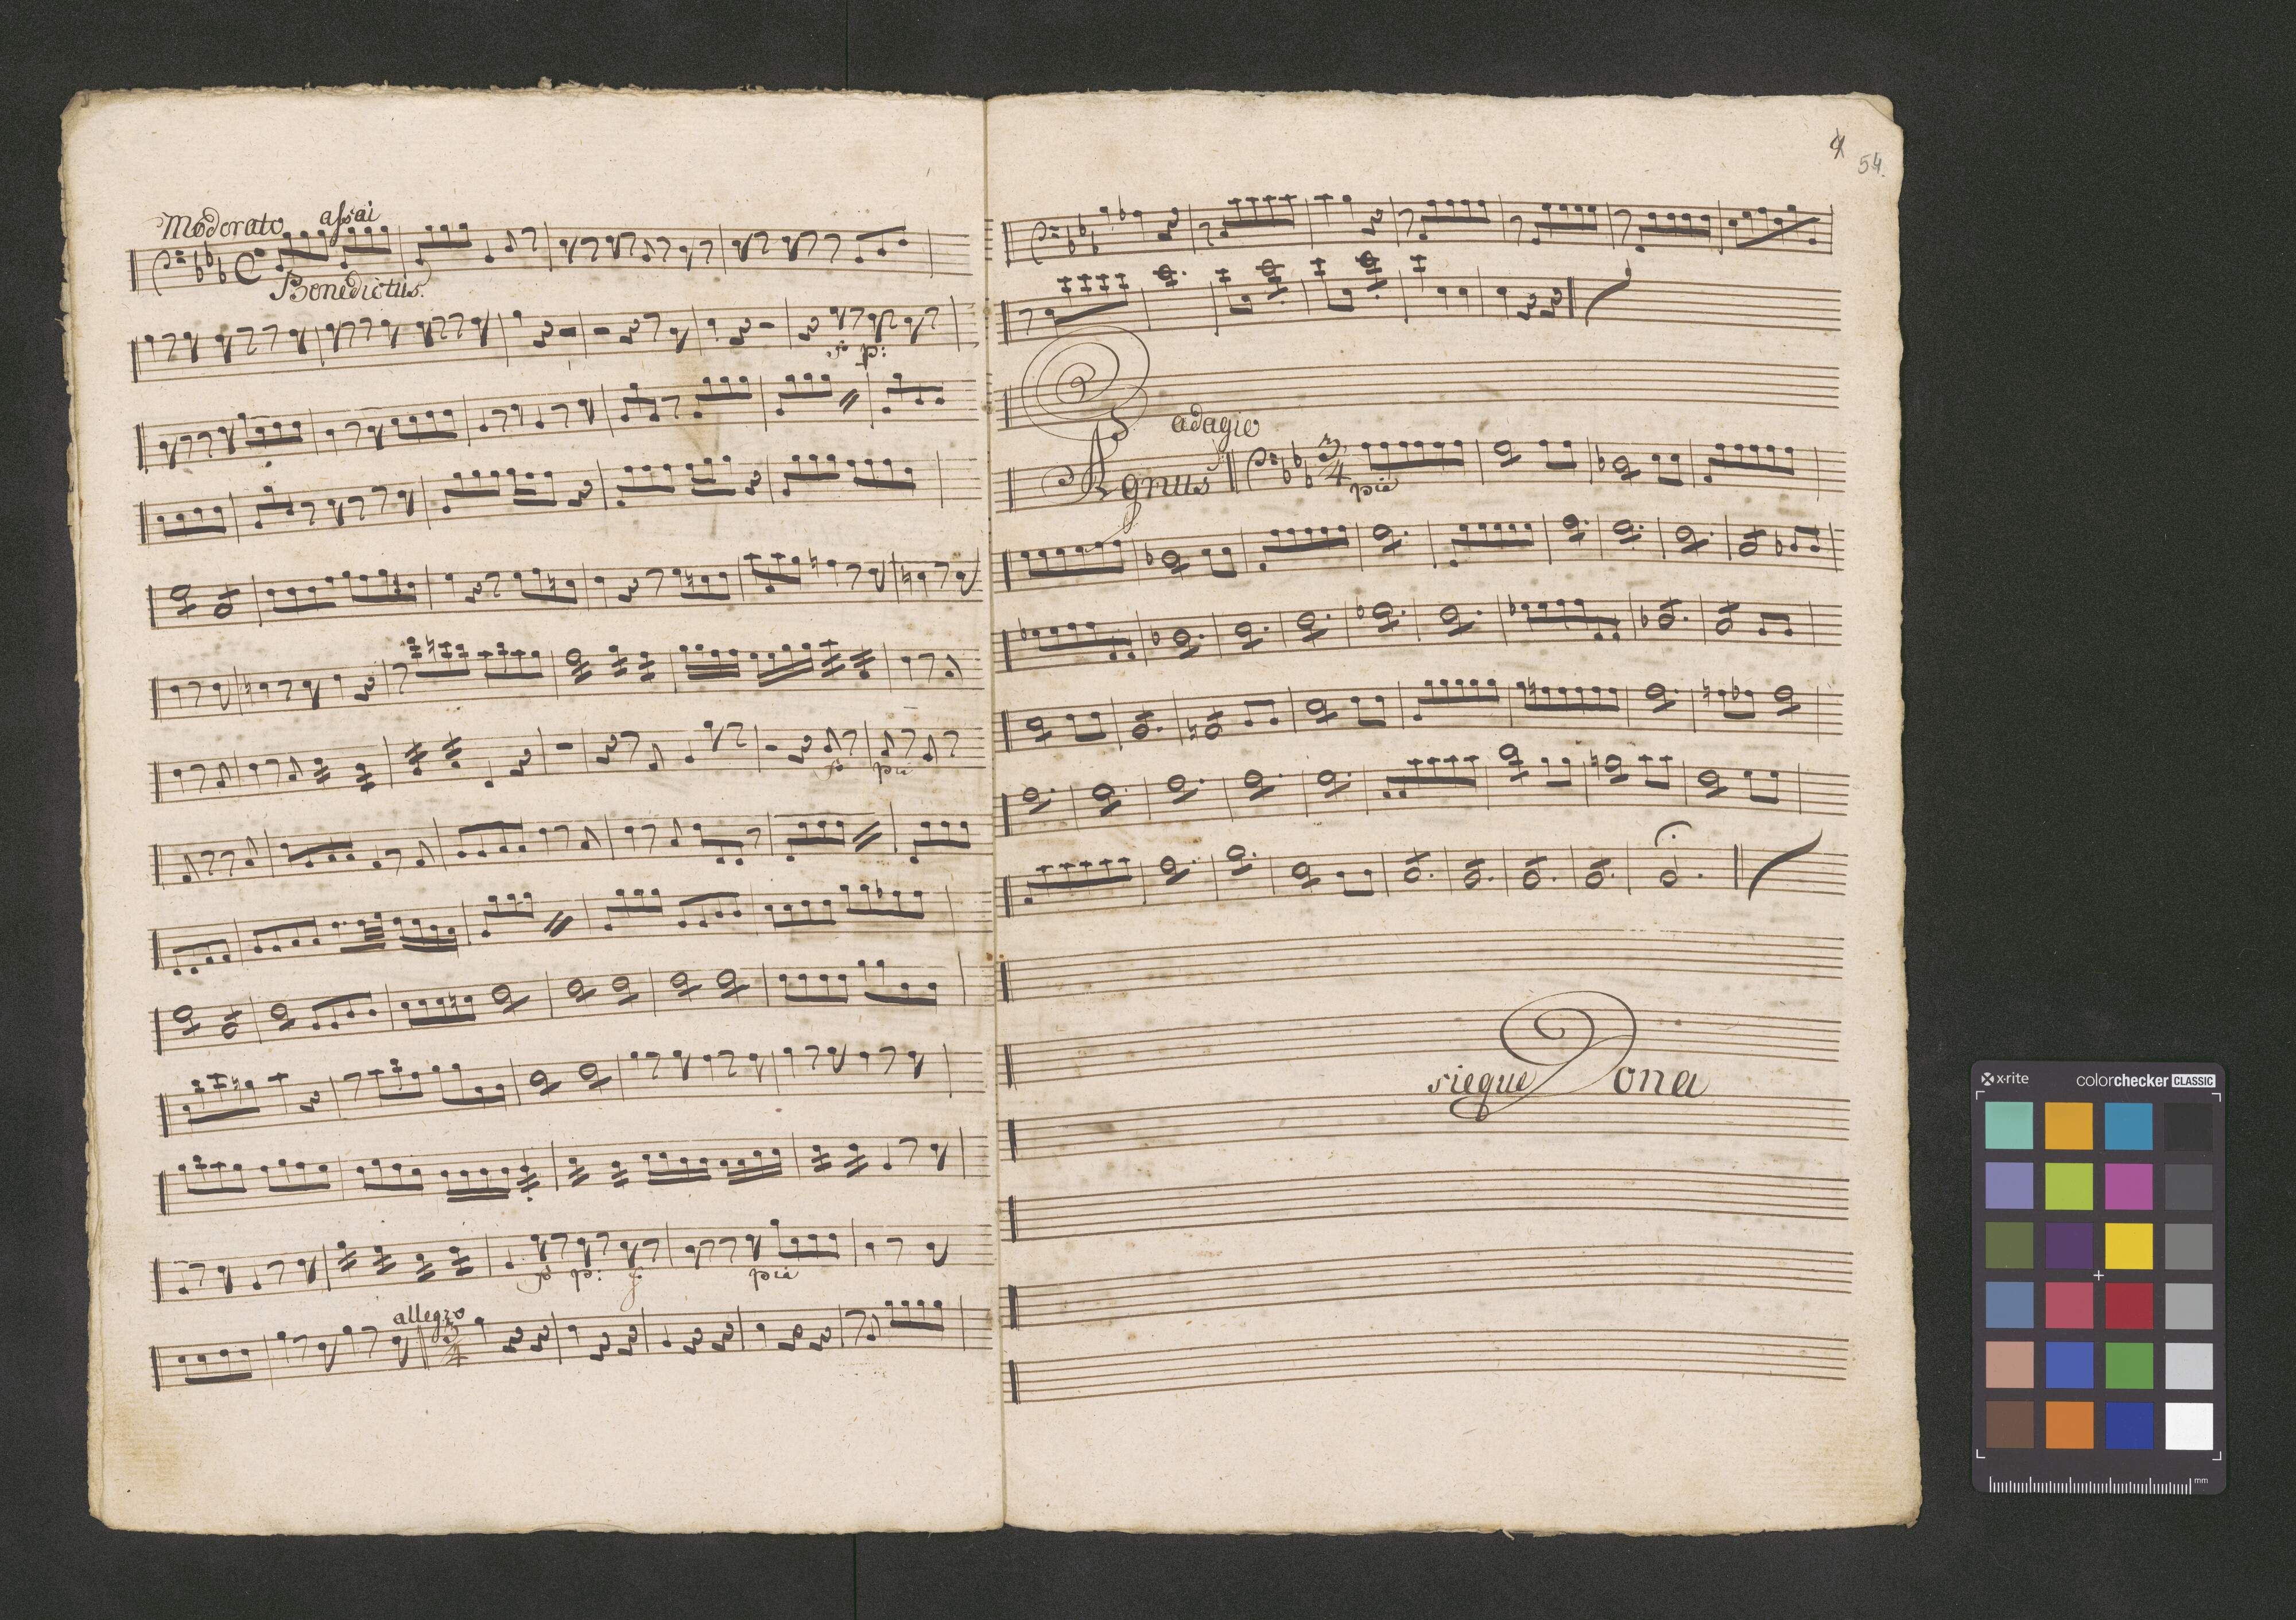 Moderato assai
Benedictus.
fo p:
fo pia
fo p: f pia
allegro
3
4
54.
adagio
Agnus
3
4
pia
siegue Dona
x-rite
colorchecker CLASSIC
mm